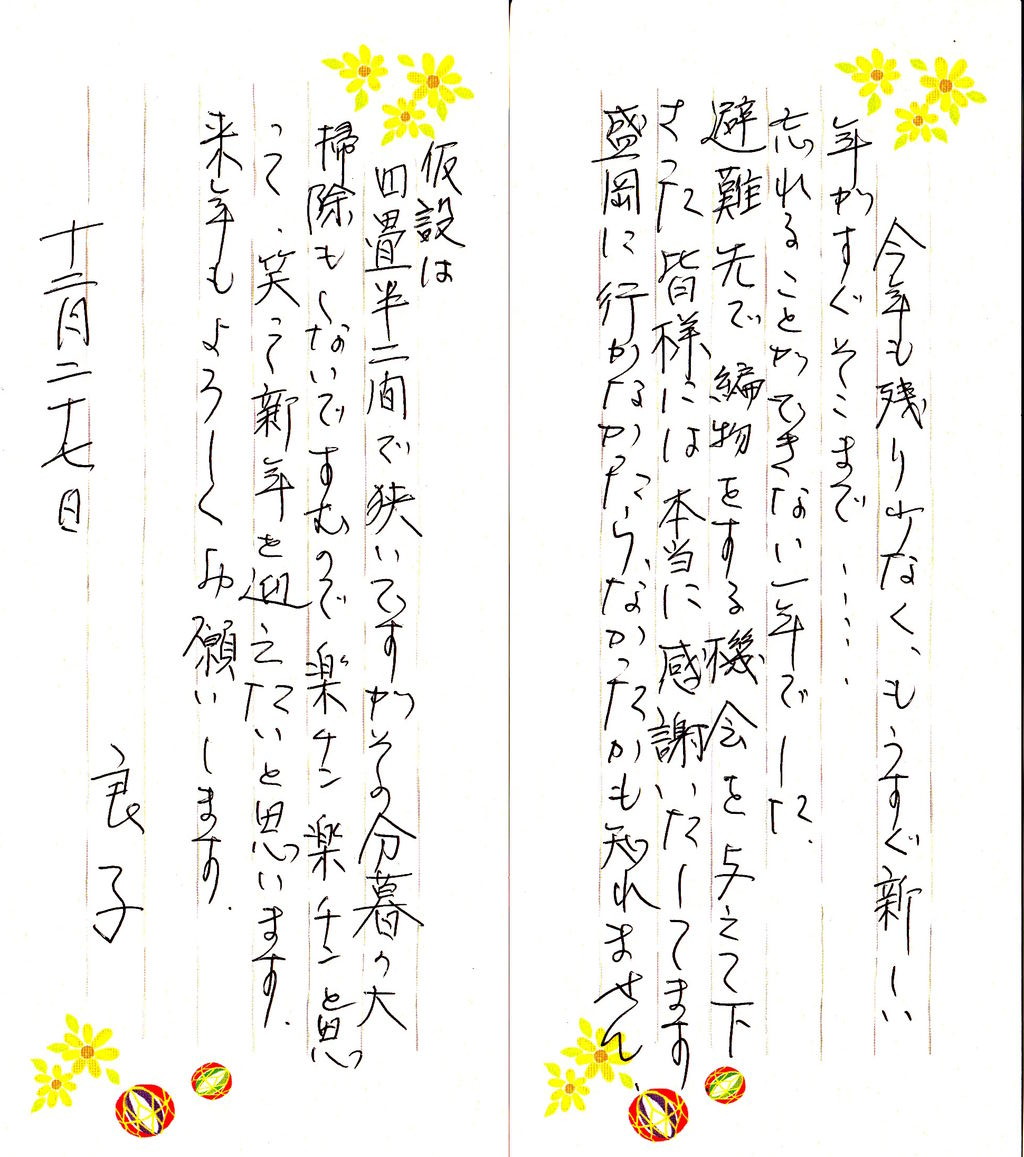 今年も残り少なく、もうすぐ新しい
年がすぐそこまで・・・・・
忘れることができない一年でした.
避難先で編物をする機会を与えて下
さった皆様には本当に感謝いたしてます
盛岡に行かなかったら、なかったかも知れません、
仮設は
四畳半二間で狭いですがその分暮の大
掃除もしないですむので楽チン楽チンと思
って、笑って新年を迎えたいと思います.
来年もよろしくお願いします.
良子
十二月二十七日